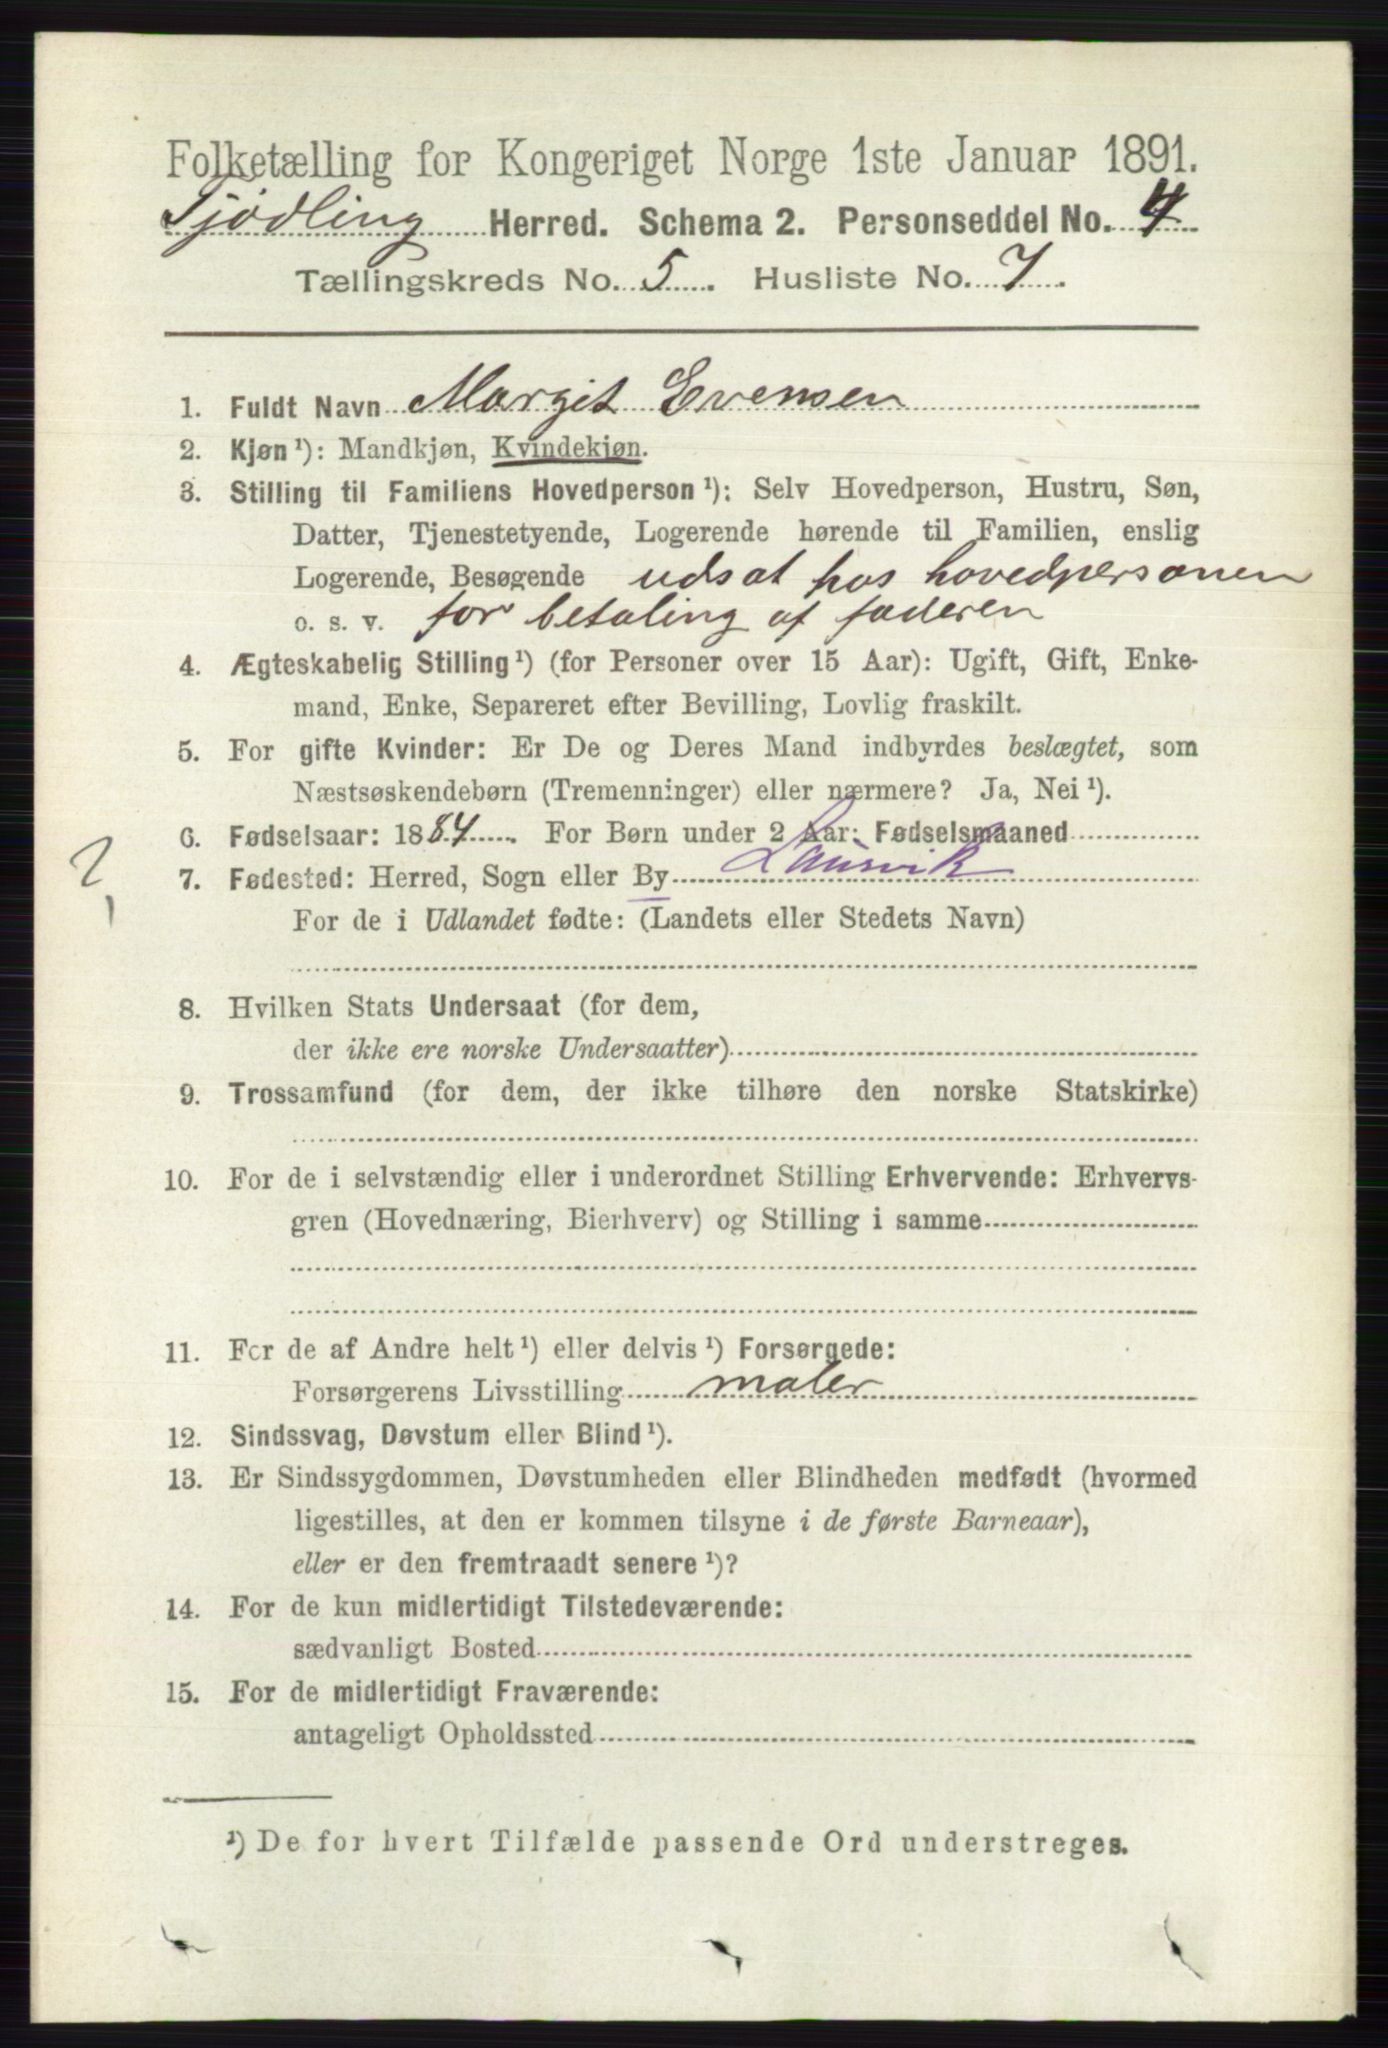 Folketælling for Kongeriget Norge 1ste Januar 1891.
Tjødling Herred. Schema 2. Personseddel No. 4
Tællingskreds No. 5. Husliste No. 7.
1. Fuldt Navn Margit Evensen
2. Kjøn¹): Mandkjøn, Kvindekjøn.
3. Stilling til Familiens Hovedperson¹): Selv Hovedperson, Hustru, Søn,
Datter, Tjenestetyende, Logerende hørende til Familien, enslig
Logerende, Besøgende udsat hos hovedpersonen
o. s. v. for betaling af faderen
4. Ægteskabelig Stilling¹) (for Personer over 15 Aar): Ugift, Gift, Enke-
mand, Enke, Separeret efter Bevilling, Lovlig fraskilt.
5. For gifte Kvinder: Er De og Deres Mand indbyrdes beslægtet, som
Næstsøskendebørn (Tremenninger) eller nærmere? Ja, Nei¹).
6. Fødselsaar: 1884. For Børn under 2 Aar: Fødselsmaaned
?
7. Fødested: Herred, Sogn eller By Laurvik
For de i Udlandet fødte: (Landets eller Stedets Navn)
8. Hvilken Stats Undersaat (for dem,
der ikke ere norske Undersaatter)
9. Trossamfund (for dem, der ikke tilhøre den norske Statskirke)
10. For de i selvstændig eller i underordnet Stilling Erhvervende: Erhvervs-
gren (Hovednæring, Bierhverv) og Stilling i samme
11. For de af Andre helt¹) eller delvis¹) Forsørgede:
Forsørgerens Livsstilling maler
12. Sindssvag, Døvstum eller Blind¹).
13. Er Sindssygdommen, Døvstumheden eller Blindheden medfødt (hvormed
ligestilles, at den er kommen tilsyne i de første Barneaar),
eller er den fremtraadt senere¹)?
14. For de kun midlertidigt Tilstedeværende:
sædvanligt Bosted
15. For de midlertidigt Fraværende:
antageligt Opholdssted
¹) De for hvert Tilfælde passende Ord understreges.